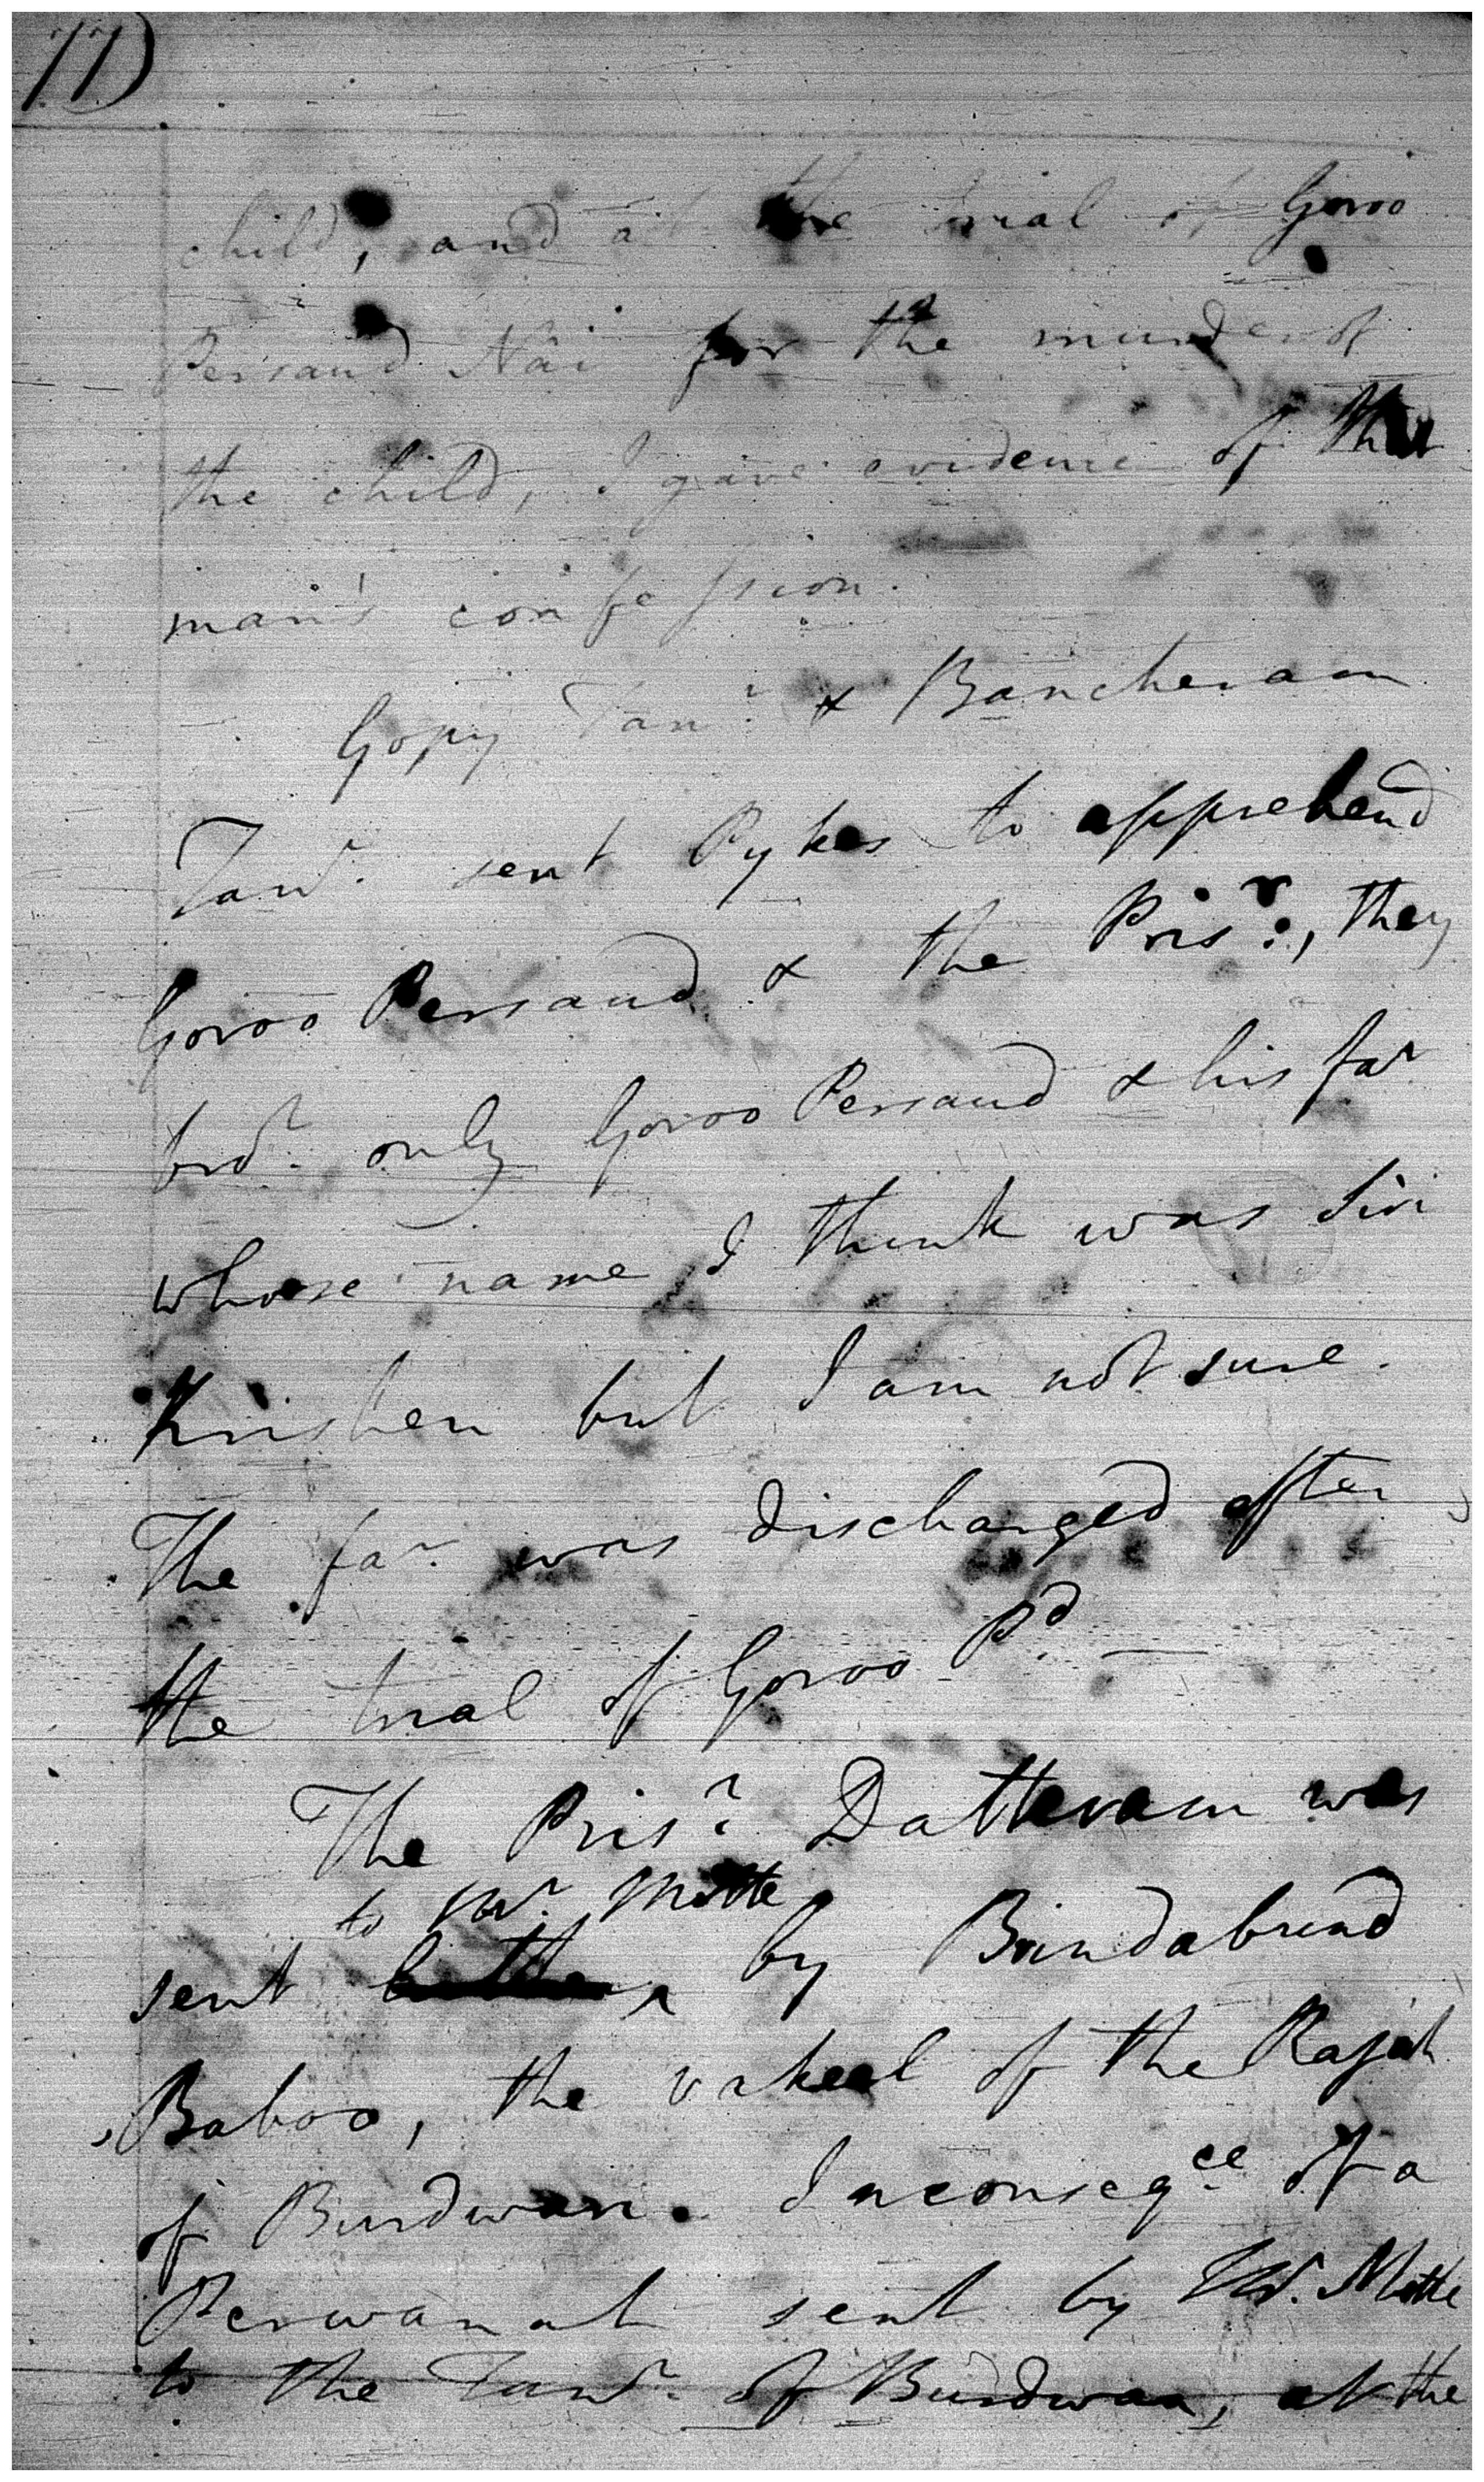 77)
child, and at the trial of Goroo
Persaud Nâi for the murder of
the child, I gave evidence of that
man's confession.
Gopy Tan.r & Bancheram
Tanr. sent Pykes to apprehend
Goroo Persaud & the Prisr., they
brot. only Goroo Persaud & his far
whose name I think was Siri
Krishen but I am not sure.
The far was discharged after
the trial of Goroo Pd. —
The Prisr. Datteram was
to Mr. Motte
sent by Brindabund
Baboo, the vakeel of the Rajah
of Burdwan. In conseqce. of a
Perwanah sent by Mr. Motte
to the Tanr. of Burdwan, at the